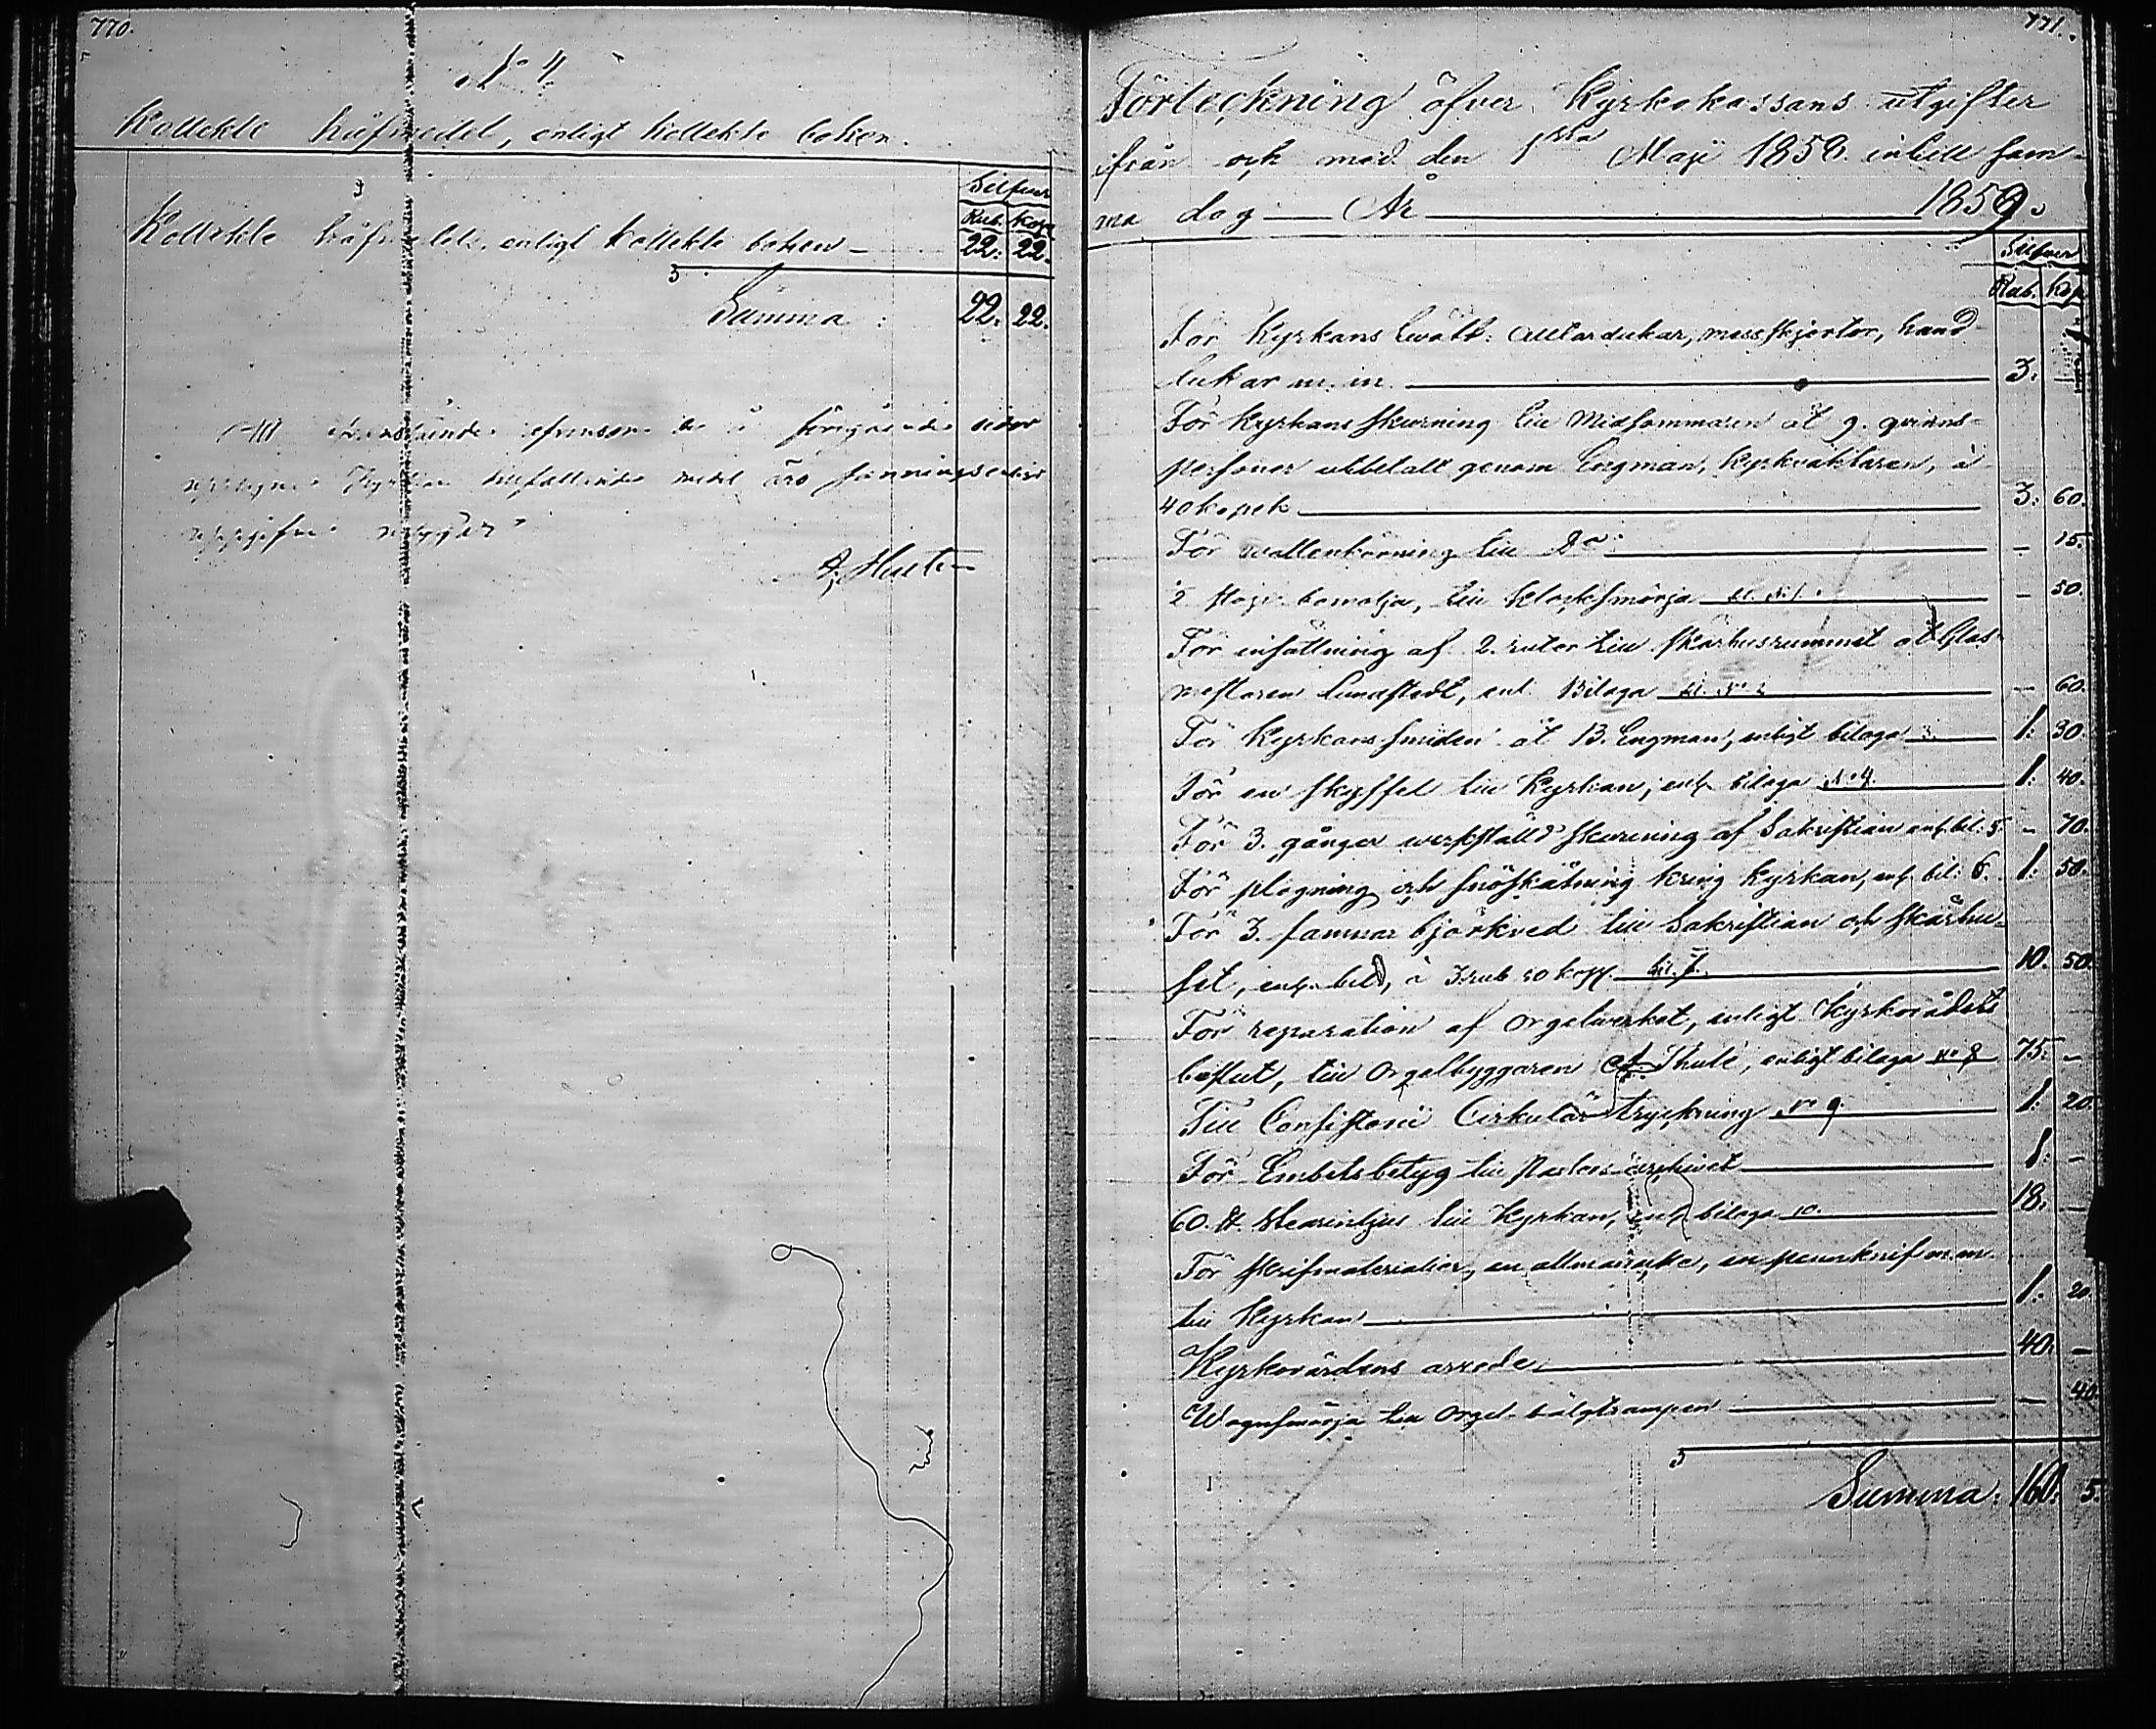 770.
No 4.
Kollekte håfmedel, enligt kollekte boken.
Silfver
Rub. Kop.
Kollekte håfmedel, enligt kollekte boken — 22. 22.
Summa: 22. 22.
Att
Kyrkan tillfallande medel äro sanningsenligt
771.
Förteckning öfver Kyrkokassans utgifter
ifrån och med den 1sta Maji 1858 intill sam-
ma dag — År — 1859.
Silfver
Rub. Kop.
För Kyrkans twätt: Altardukar, messskjortor, hand-
dukar m. m. — 3. —
För Kyrkans skurning till Midsommaren åt 9. qvinns-
personer utbetalt genom Engman, Kyrkväktaren, à
40 kopek — 3. 60.
För wattenkörning till Do — – 25.
2 stop bomolja, till klocksmörja bil. No 1. — – 50.
För insättning af 2. rutor till skärhusrummet åt Glas-
mästaren Lundstedt, enl. Bilaga bil. No 2 — – 60.
För Kyrkans smiden åt B. Engman, enligt bilaga 3. — 1. 30.
För en skyffel till Kyrkan, enl. bilaga No 4. — 1. 40.
För 3. gånger werkställd skurning af Sakristian enl. bil: 5. – 70.
För plogning och snöskåtning kring kyrkan, enl. bil: 6. 1. 50.
För 3. famnar björkved till Sakristian och skärhu-
set, enl. bil, à 3 rub 50 kop. bil. 7. — 10. 50.
För reparation af orgelverket, enligt Kyrkorådets
beslut, till Orgelbyggaren Thulé, enligt bilaga No 8 75. –
Till Consistorii Cirkulär tryckning No 9. — 1. 20.
För Embetsbetyg till Pastors archivet — 1. –
60. ℔. stearinljus till Kyrkan, enl. bilaga 10. — 18. –
För skrifmaterialier, en allmanacka, en pennknif m. m.
till Kyrkan — 1. 20.
Kyrkovärdens arrode — 40. –
Wagnsmörja till Orgel-bälgtrampen — – 40.
Summa: 160. 5.